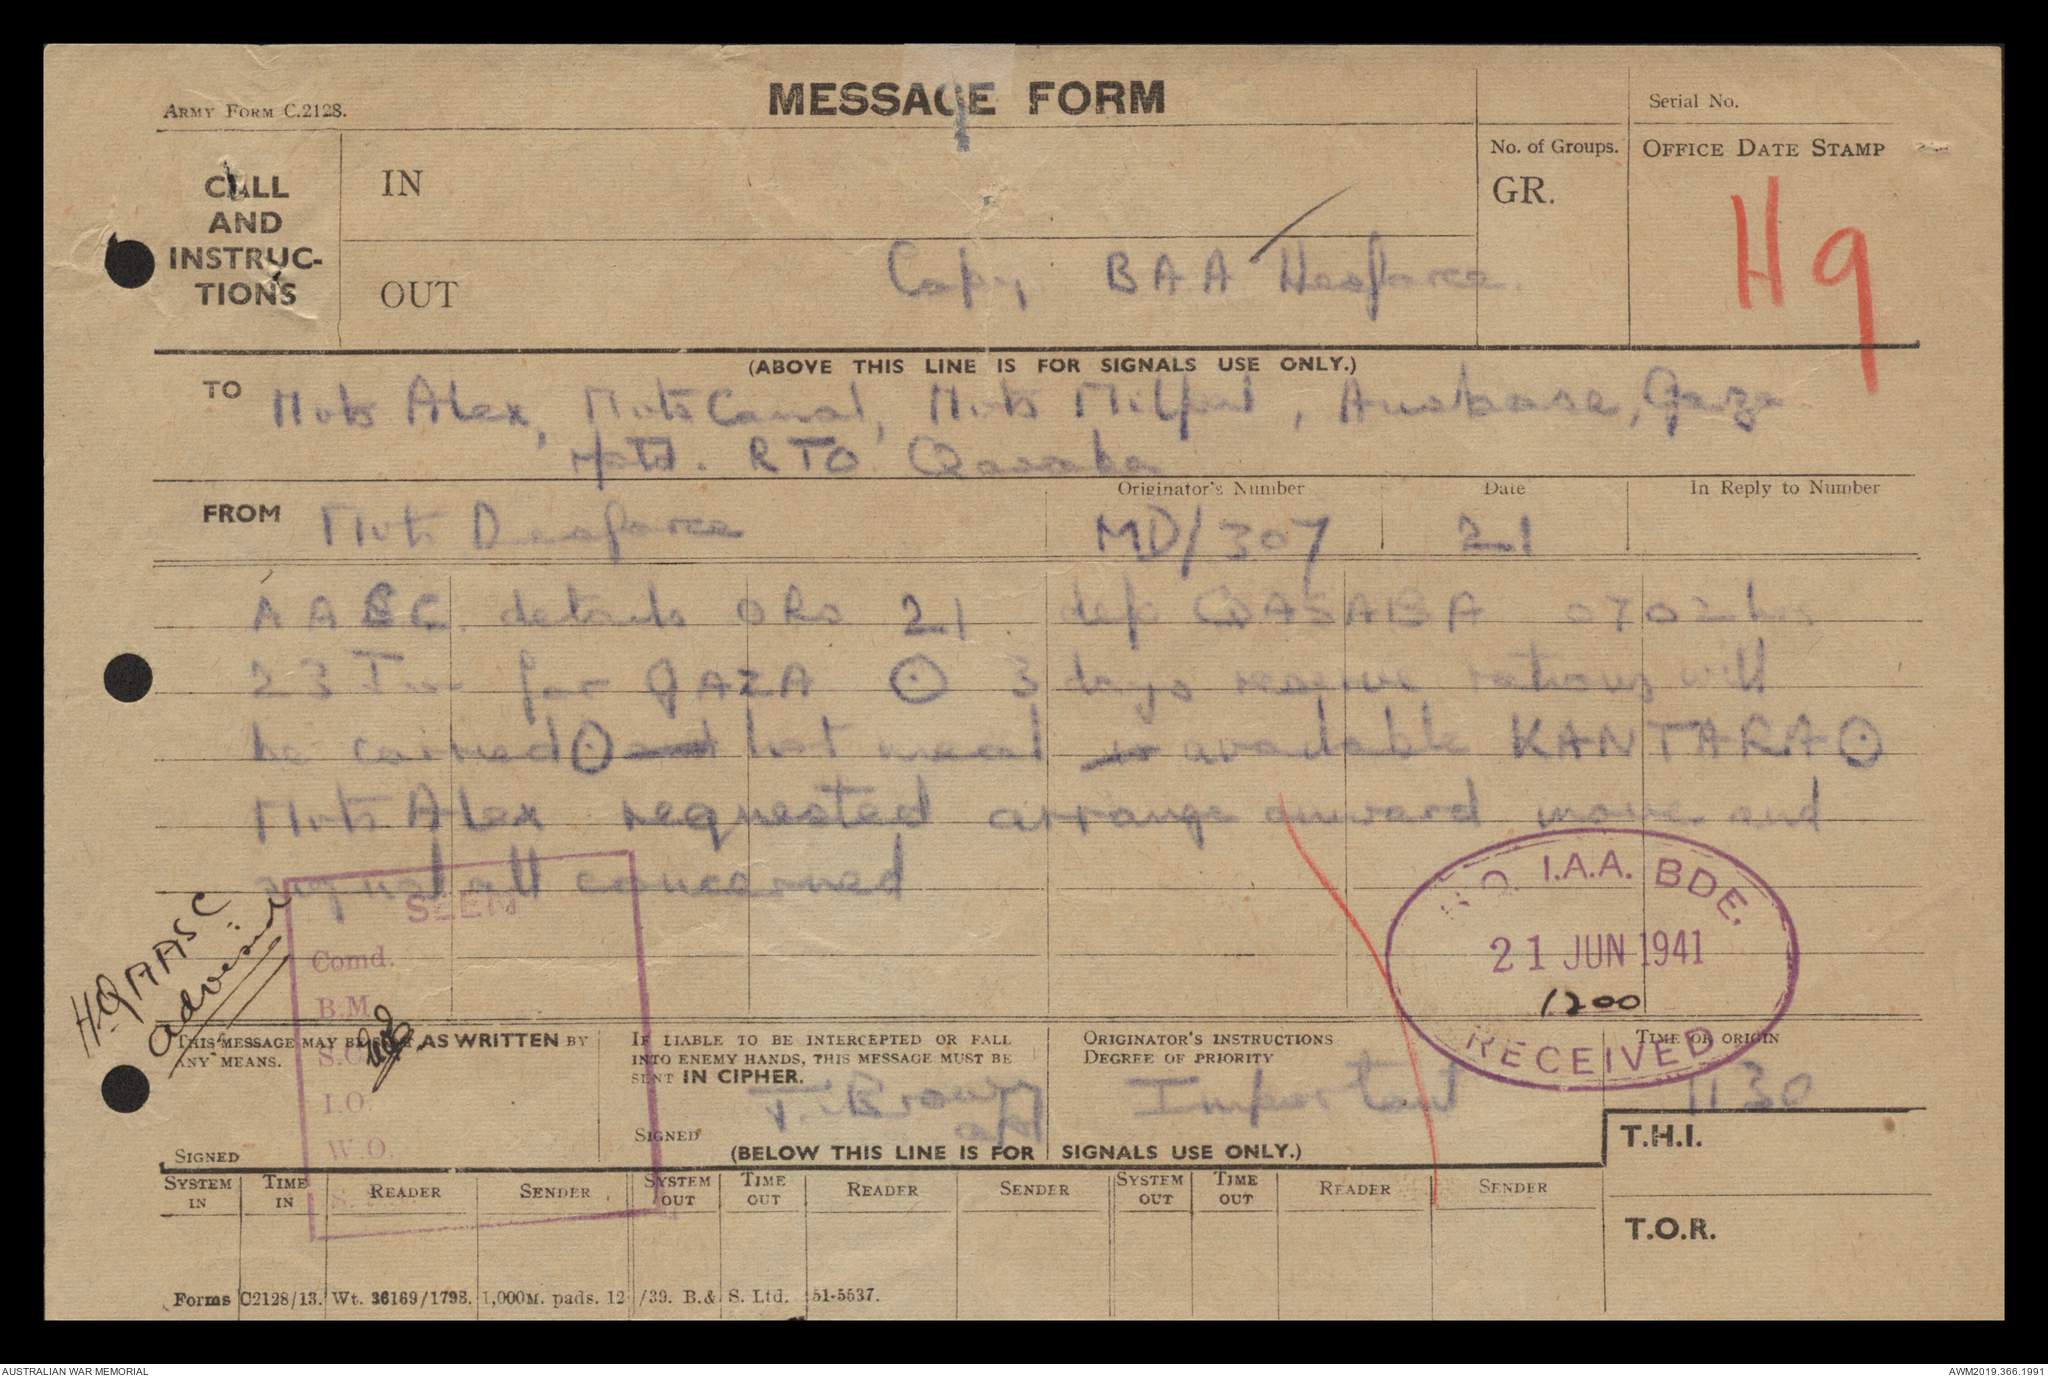 ARMY FORM C.2128.
MESSAGE FORM
Serial No.
CALL
AND
INSTRUC-
TIONS
IN
OUT
No. of Groups.
GR.
OFFICE DATE STAMP
H9
Copy BAA Desforce
(ABOVE THIS LINE IS FOR SIGNALS USE ONLY.)
TO Mots Alex, Mots Canal, Mots Milpal, Ausbase, Gaza
rptd. RTO Qasaba
FROM Mots Desforce
Originator's Number
MD/307
Date
21
In Reply to Number
AASC details ORs 21 dep QASABA 0702 hrs
23 Jun for GAZA ⊙ 3 days reserve rations will
be carried ⊙ hot meal available KANTARA ⊙
Mots Alex requested arrange onward move and
signal all concerned
SEEN
Comd.
B.M.
S.C.
I.O.
W.O.
S.
HQ AASC
advised
H.Q. I.A.A. BDE.
21 JUN 1941
1200
RECEIVED
THIS MESSAGE MAY BE SENT AS WRITTEN BY
ANY MEANS.
SIGNED
IF LIABLE TO BE INTERCEPTED OR FALL
INTO ENEMY HANDS, THIS MESSAGE MUST BE
SENT IN CIPHER.
SIGNED T. Brown
ORIGINATOR'S INSTRUCTIONS
DEGREE OF PRIORITY
Important
TIME OF ORIGIN
1130
(BELOW THIS LINE IS FOR SIGNALS USE ONLY.)
T.H.I.
T.O.R.
SYSTEM IN
TIME IN
READER
SENDER
SYSTEM OUT
TIME OUT
READER
SENDER
SYSTEM OUT
TIME OUT
READER
SENDER
Forms C2128/13. Wt. 36169/1798. 1,000M. pads. 12 /39. B. & S. Ltd. 51-5537.
AUSTRALIAN WAR MEMORIAL
AWM2019.366.1991